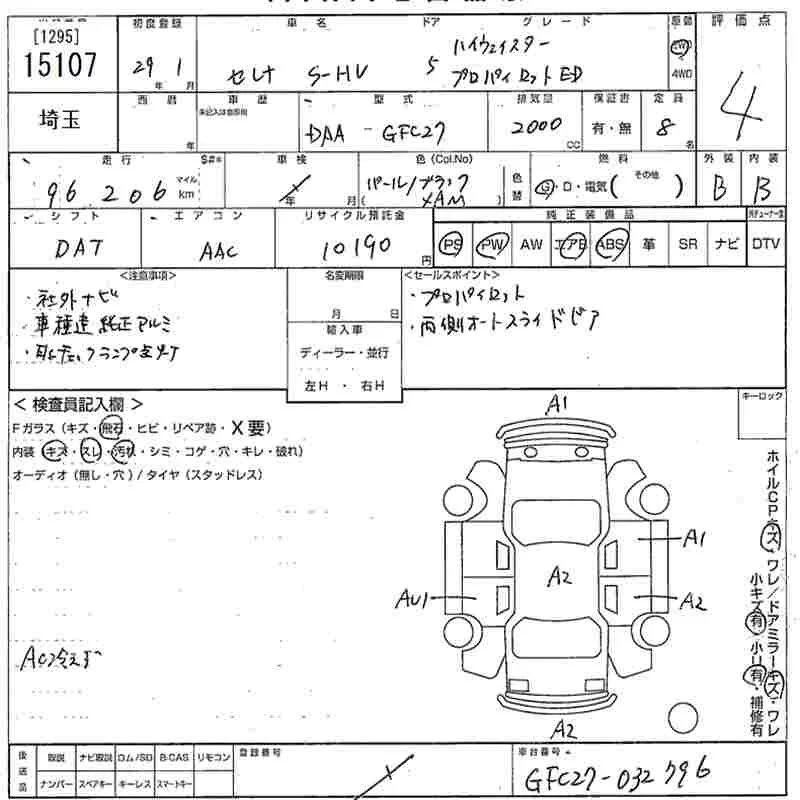 [1295]
15107
初度登録
29年 1月
車名 ドア グレード
セレナ S-HV 5 ハイウェイスター
プロパイロットED
原動
2WD
4WD
評価点
4
埼玉
西暦
年
車歴
未記入は自家用
型式
DAA - GFC27
排気量
2000 CC
保証書
有・無
定員
8名
走行 $#*
96206 マイル km
車検
年 月
色(Col.No)
パール/ブラック
( XAM )
色替
燃料
G・D・電気( その他 )
外装
B
内装
B
シフト
DAT
エアコン
AAC
リサイクル預託金
10190円
純正装備品
PS PW AW エアB ABS 革 SR ナビ
DTV
<注意事項>
・社外ナビ
・車種違純正アルミ
名変期限
月 日
輸入車
ディーラー・並行
左H ・ 右H
<セールスポイント>
・プロパイロット
・両側オートスライドドア
< 検査員記入欄 >
Fガラス(キズ・飛石・ヒビ・リペア跡・X要)
内装(キズ・スレ・汚れ・シミ・コゲ・穴・キレ・破れ)
オーディオ(無し・穴)/タイヤ(スタッドレス)
キーロック
A1
A1
A2
AU1
A2
A2
AC冷えず
ホイルCPキズ・ワレ/ドアミラーキズ・ワレ
小キズ有・小リ有・補修有
後送品
取説 ナビ取説 ロム/SD B-CAS リモコン
ナンバー スペアキー キーレス スマートキー
登録番号
車台番号
GFC27-032796